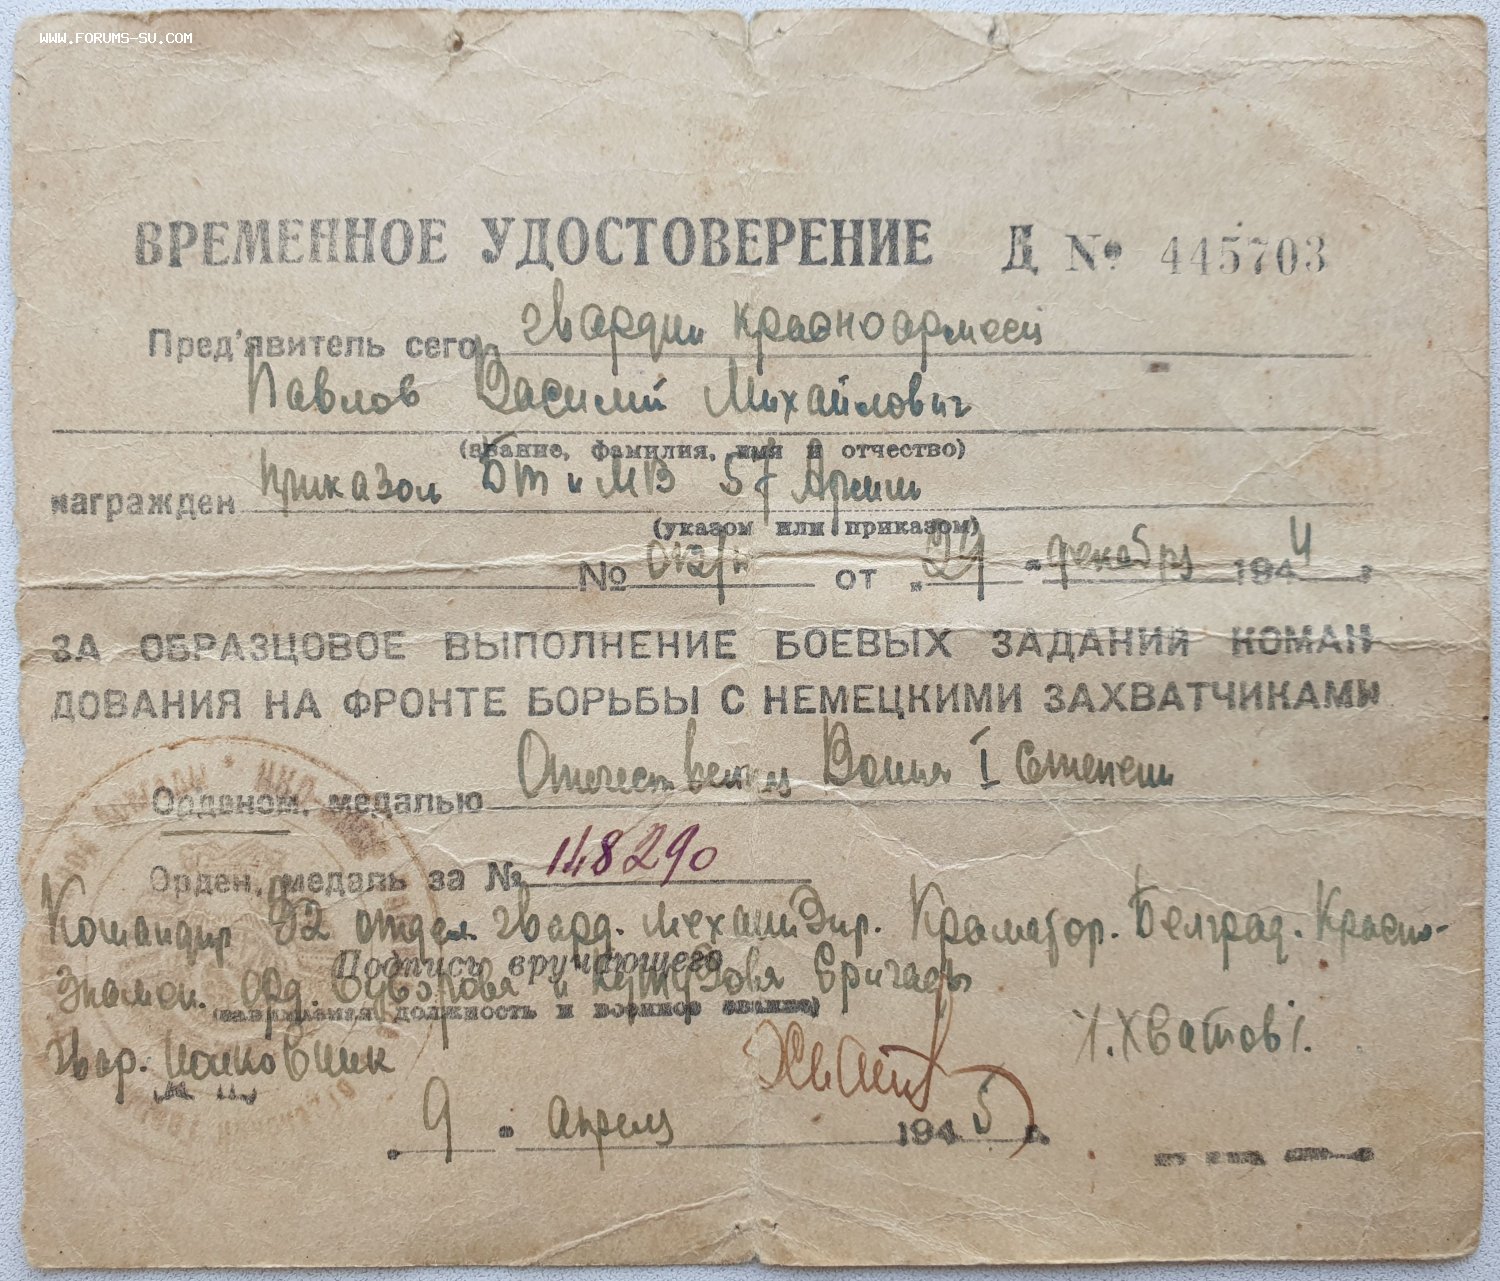 WWW.FORUMS-SU.COM
ВРЕМЕННОЕ УДОСТОВЕРЕНИЕ Д № 445703
Пред'явитель сего гвардии красноармеец
Павлов Василий Михайлович
(звание, фамилия, имя и отчество)
награжден приказом БТ и МВ 57 Армии
(указом или приказом)
№ 012/н от „24" декабря 1944 г
ЗА ОБРАЗЦОВОЕ ВЫПОЛНЕНИЕ БОЕВЫХ ЗАДАНИЙ КОМАН
ДОВАНИЯ НА ФРОНТЕ БОРЬБЫ С НЕМЕЦКИМИ ЗАХВАТЧИКАМИ
Орденом, медалью Отечественная Война I Степени
Орден, медаль за № 148290
Командир 32 отдел. гвард. механизир. Краматор. Белград. Красно-
Подпись вручающего
знамен. орд. Суворова и Кутузова бригады
должность и военное звание)
гвар. полковник /.Хватов/.
М. П.
„9" апреля 1945 г.